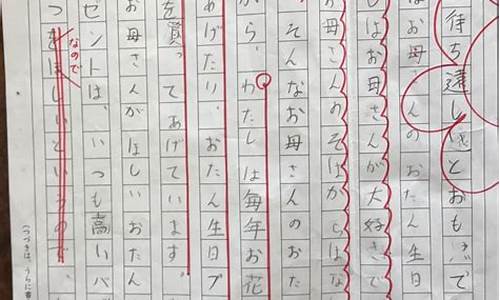 待ち遠しいとおもいで
はお母さんのおたん生日
しはお母さんが大好きで
お母さんのそばからはな
そんなお母さんのおた
から、わたしは毎年お花
あげたり、おたん生日プ
を買ってあげています。
お母さんがほしいおたん
ゼントは、いつも高いバ
なので
つをほしいというので、
(つづきは、うらに書